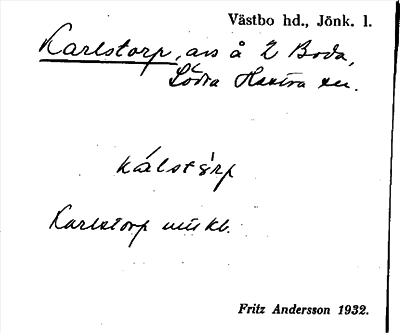 Västbo hd., Jönk. l.
Karlstorp, avs å 2 Boda,
Södra Hestra sn.
kálstòrp
Karlstorp mtskb.
Fritz Andersson 1932.